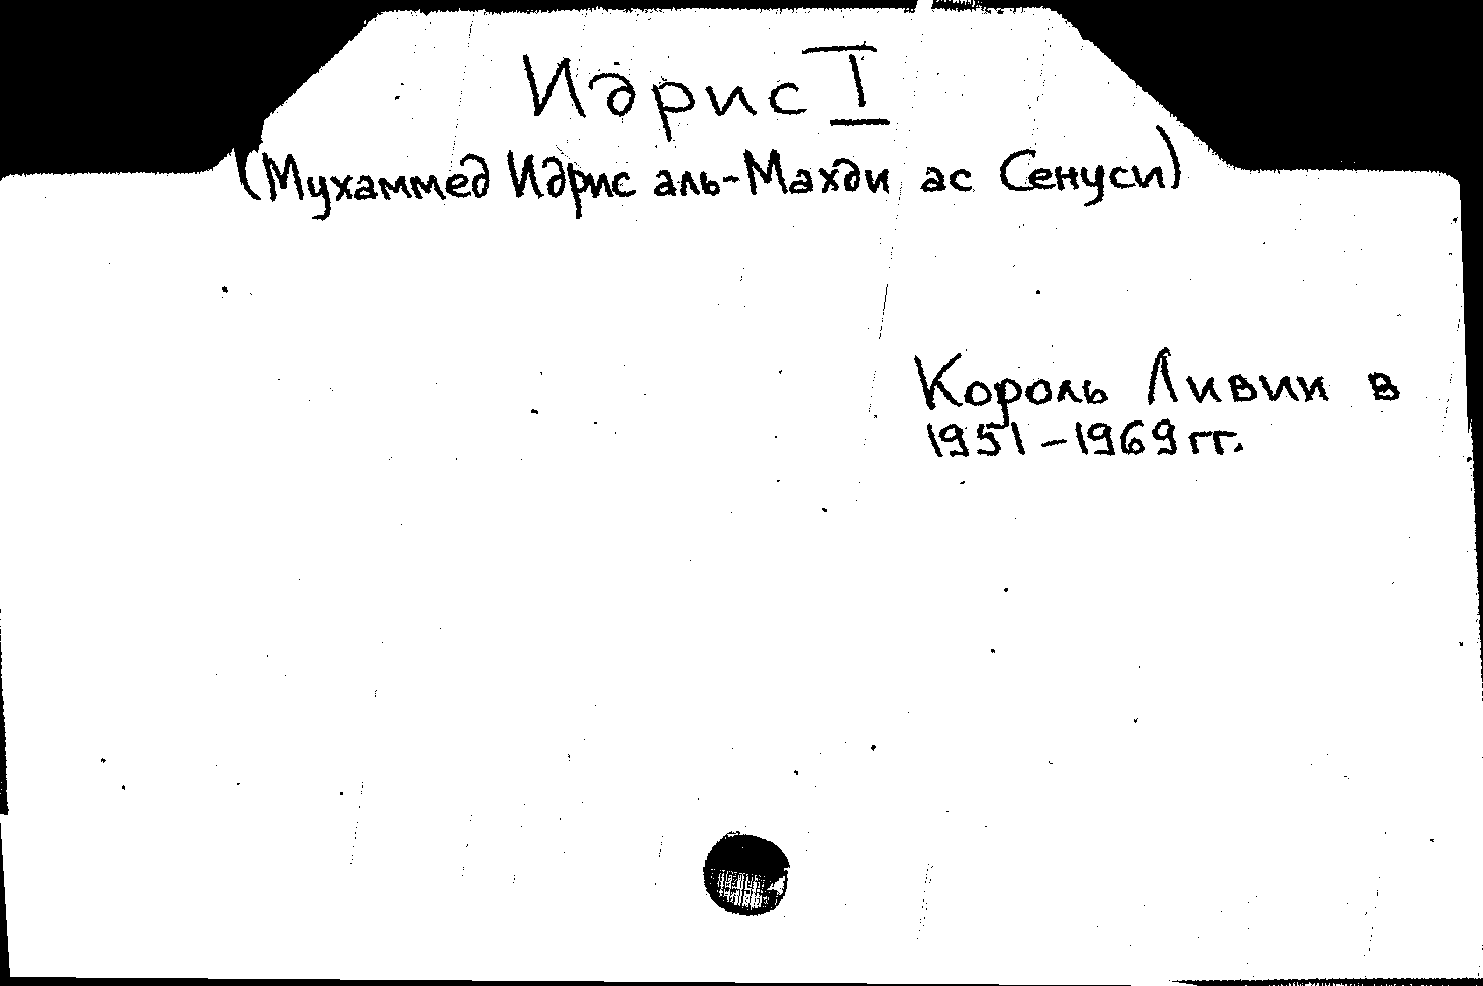 Идрис I
(Мухаммед Идрис аль-Махди ас Сенуси)
Король Ливии в
1951-1969 гг.